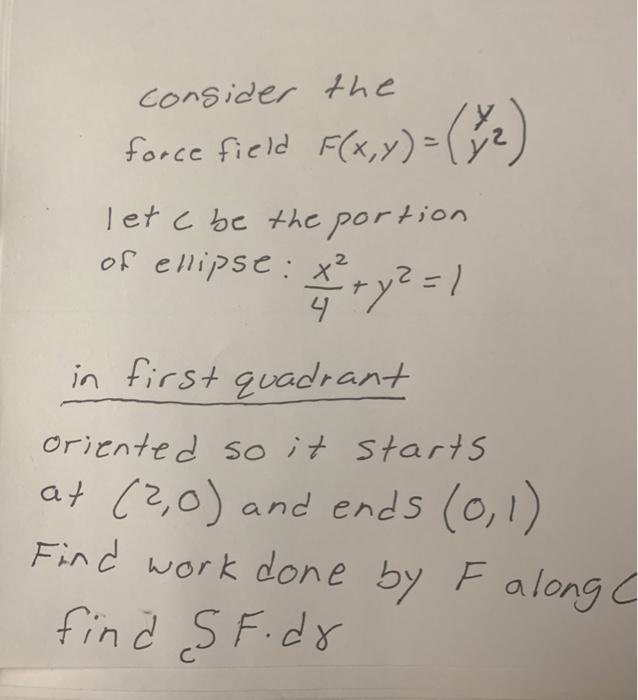 consider the
force field F(x,y) = (y y²)
let c be the portion
of ellipse: x²/4 + y² = 1
in first quadrant
oriented so it starts
at (2,0) and ends (0,1)
Find work done by F along C
find ∫c F·dr